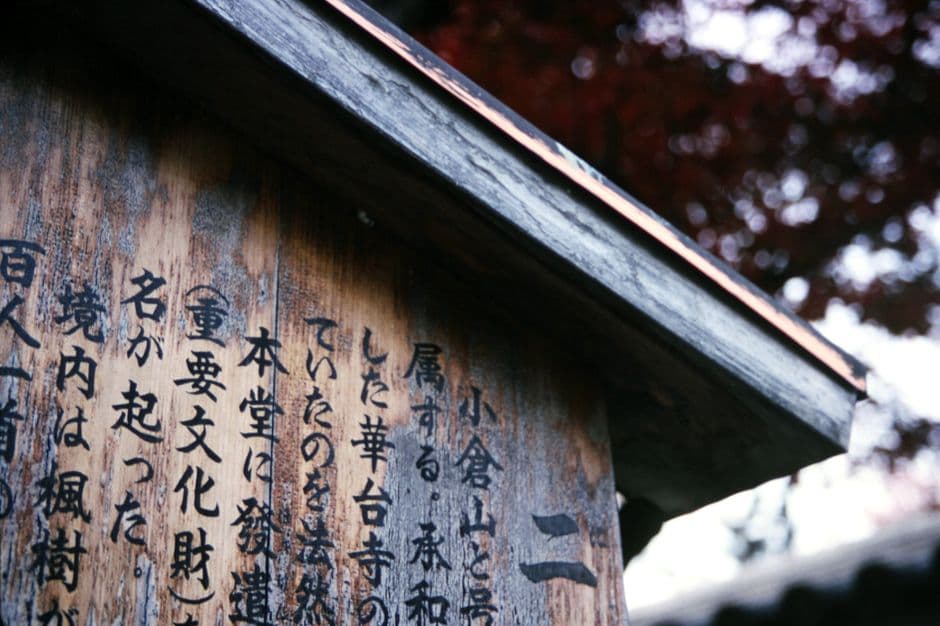 二
小倉山と号
属する。承和
した華台寺の
ていたのを法然
本堂に發遣
(重要文化財)
名が起った。
境内は楓樹が
百人一首